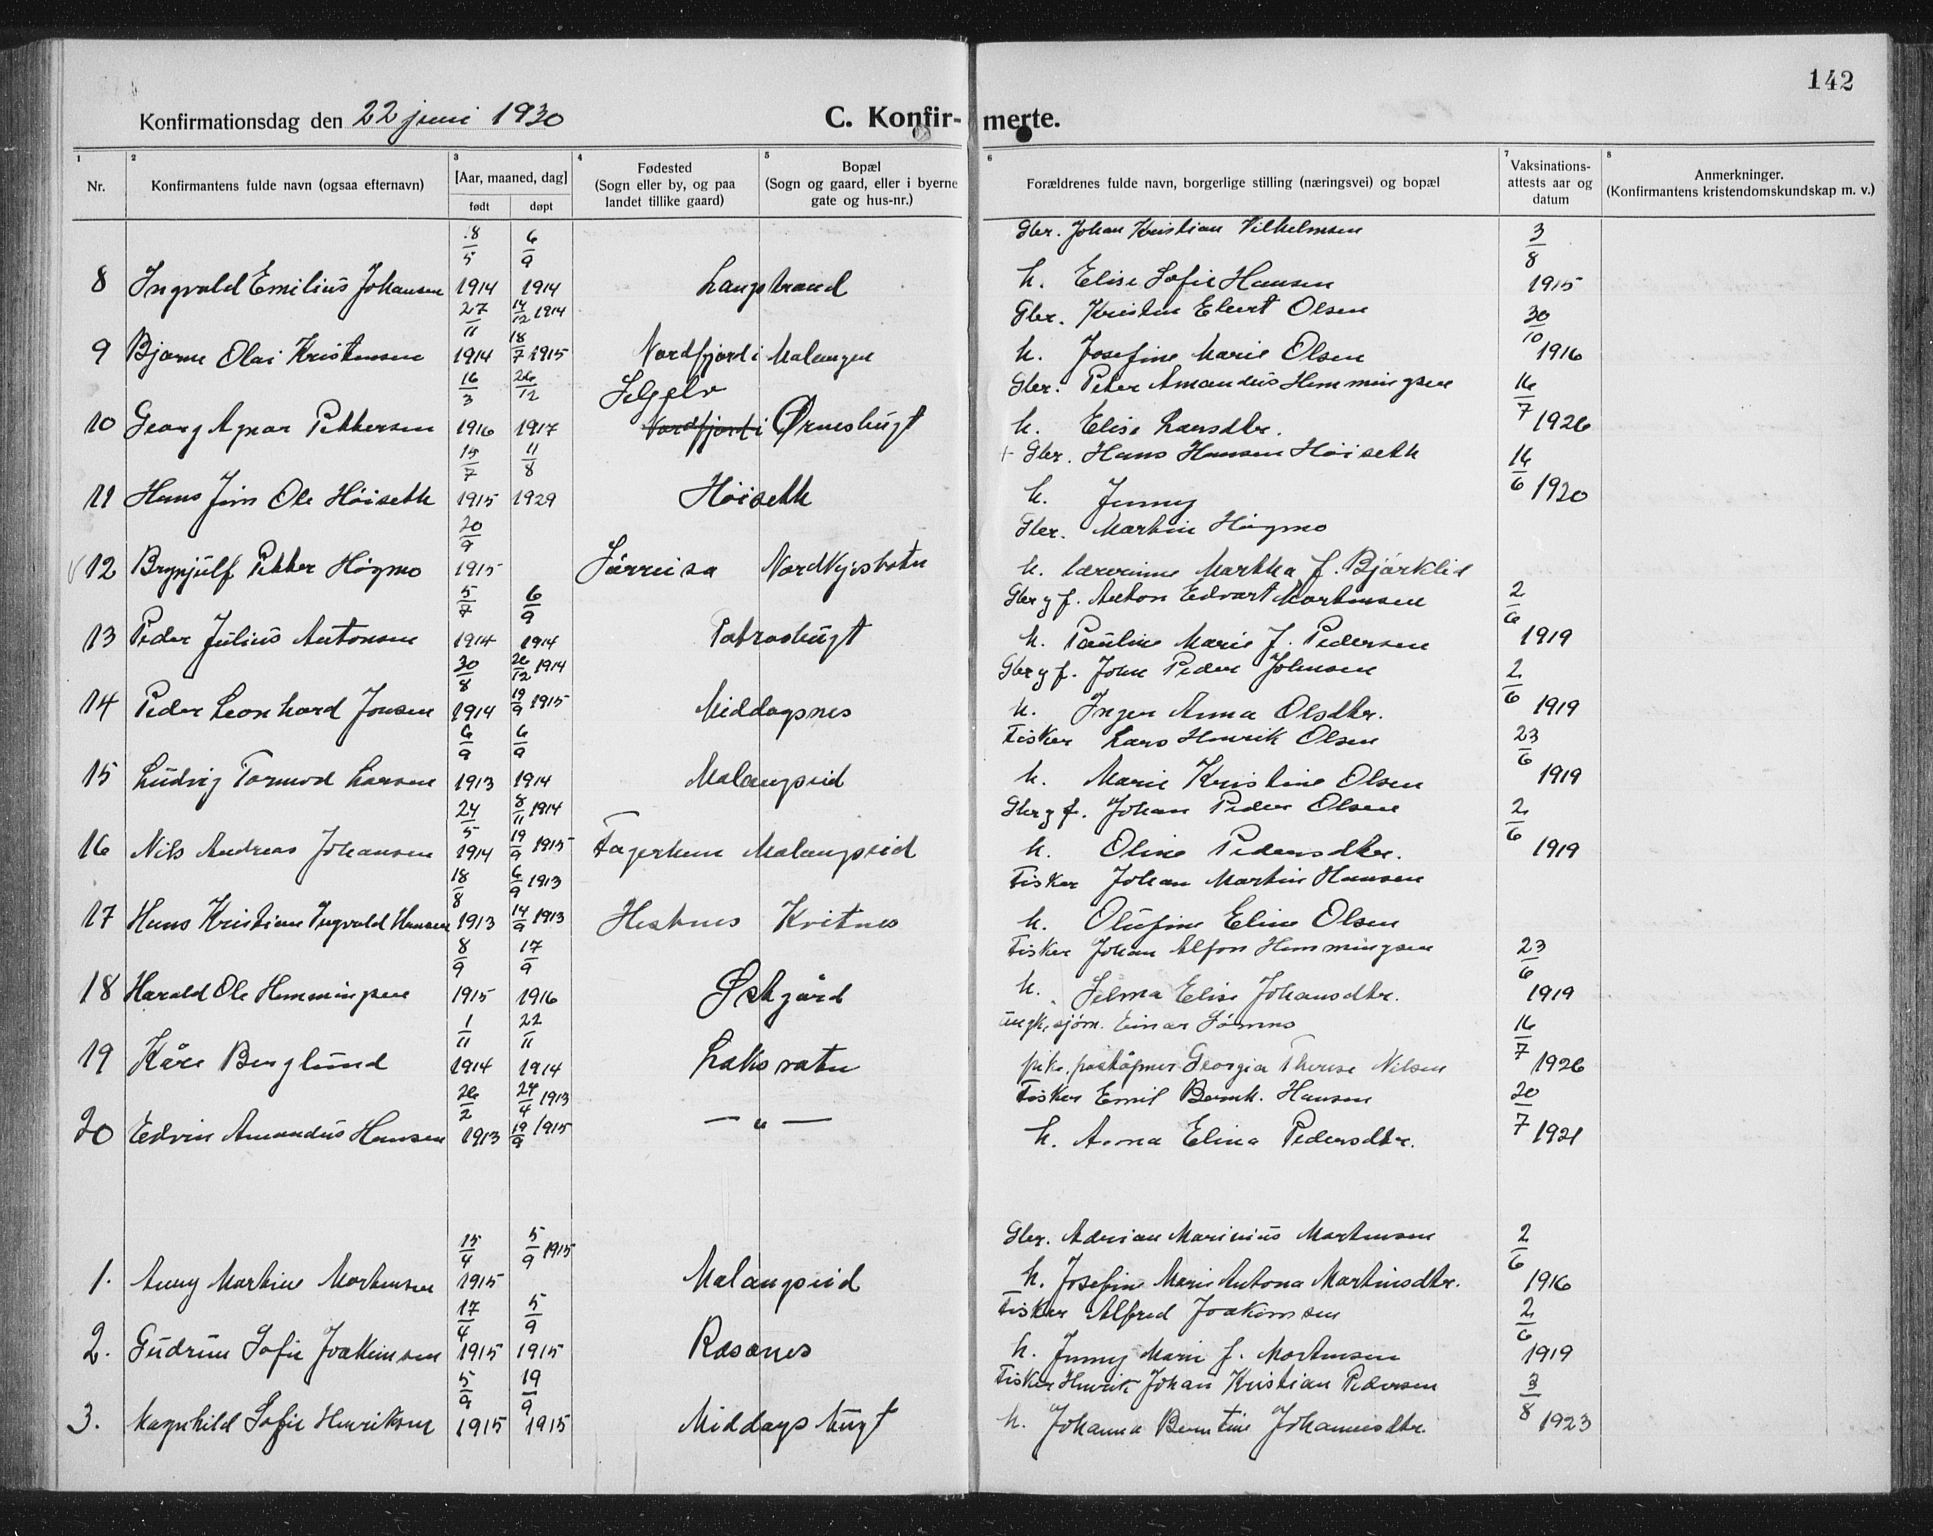 142
Konfirmationsdag den 22 juni 1930 C. Konfir- merte.
1 2 3 4 5 6 7 8
Nr. Konfirmantens fulde navn (ogsaa efternavn) [Aar, maaned, dag] født døpt Fødested (Sogn eller by, og paa landet tillike gaard) Bopæl (Sogn og gaard, eller i byerne gate og hus-nr.) Forældrenes fulde navn, borgerlige stilling (næringsvei) og bopæl Vaksinations-attests aar og datum Anmerkninger. (Konfirmantens kristendomskundskap m. v.)
8/5 6/9 Gbr. Johan Kristian Vilhelmsen 3/8
8 Ingvald Emilius Johansen 1914 1914 Langstrand h. Elise Sofie Hansen 1915
27/11 14/12 1914 Gbr. Kristen Elert Olsen 30/10
9 Bjarne Olai Kristensen 1914 18/7 1915 Nordfjord i Malangen h. Josefine Marie Olsen 1916
16/3 26/12 Selgelv Gbr. Peter Amandus Hemmingsen 16/7
10 Georg Agnar Pettersen 1916 1917 Nordfjord i Ørnesbugt h. Elise Larsdtr. 1926
15/7 11/8 + Gbr. Hans Hansen Høiseth 16/6
11 Hans Jim Ole Høiseth 1915 1929 Høiseth h. Jenny 1920
20/9 Gbr. Martin Høgmo
12 Brynjulf Petter Høgmo 1915 Sørreisa Nordkjosbotn h. lærerinne Martha f. Bjørklid
5/7 6/9 Gbr og f. Anton Edvart Mortensen 2/6
13 Peder Julius Antonsen 1914 1914 h. Pauline Marie f. Pedersen 1919
30/8 26/12 1914 Gbr og f. John Peder Johnsen 2/6
14 Peder Leonhard Jonsen 1914 19/9 1915 Middagsnes h. Inger Anna Olsdtr. 1919
6/9 6/9 Fisker Lars Henrik Olsen 23/6
15 Ludvig Tormod Larsen 1913 1914 Malangseid h. Marie Kristine Olsen 1919
24/5 8/11 1914 Gbr og f. Johan Peder Olsen 2/6
16 Nils Andreas Johansen 1914 19/9 1915 Fagerheim Malangseid h. Oline Pedersdtr. 1919
18/8 6/9 1913 Fisker Johan Martin Hansen
17 Hans Kristian Ingvald Hansen 1913 14/9 1913 Hestnes Kvitnes h. Olufine Eline Olsen
8/9 17/9 Fisker Johan Alfon Hemmingsen 23/6
18 Harald Ole Hemmingsen 1915 1916 Østgård h. Selma Elise Johansdtr. 1919
1/11 22/11 ungk. sjøm. Einar Sømnes 16/7
19 Kåre Berglund 1914 1914 Laksvatn pike, poståpner Georgia Therese Nilsen 1926
26/2 24/4 1913 Fisker Emil Bernh. Hansen 20/7
20 Edvin Amandus Hansen 1913 19/9 1915 — " — h. Anna Elina Pedersdtr. 1921
15/4 5/9 1915 Gbr. Adrian Marinius Mortensen 2/6
1. Anny Martine Mortensen 1915 Malangseid h. Josefine Marie Antona Martinsdtr. 1916
17/4 5/9 Fisker Alfred Joakimsen 2/6
2. Gudrun Sofie Joakimsen 1915 1915 Rasanes h. Jenny Marie f. Mortensen 1919
5/9 19/9 Fisker Henrik Johan Kristian Pedersen 3/8
3. Magnhild Sofie Henriksen 1915 1915 Middagsbugt h. Johanna Berntine Johannesdtr. 1923